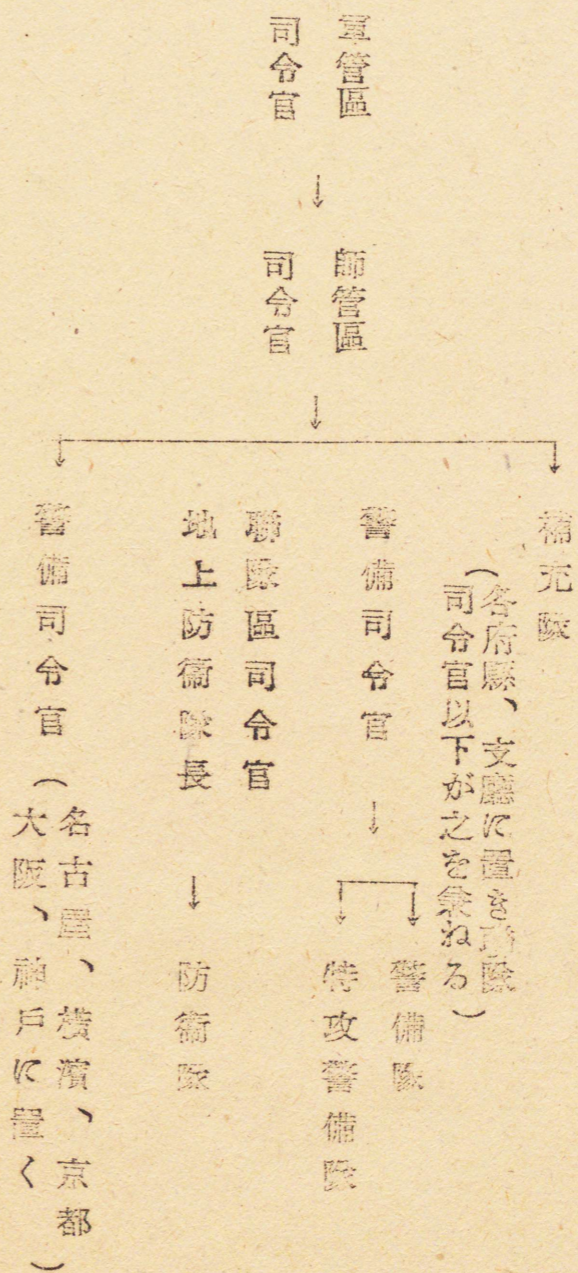 軍管區
司令官
↓
師管區
司令官
↓
補充隊
(各府縣、支廳に置き 隊
司令官以下が之を兼ねる)
警備司令官
↓
警備隊
特攻警備隊
聯隊區司令官
地上防衞隊長
↓
防衞隊
警備司令官
(名古屋、横濱、京都
大阪、神戸に置く)